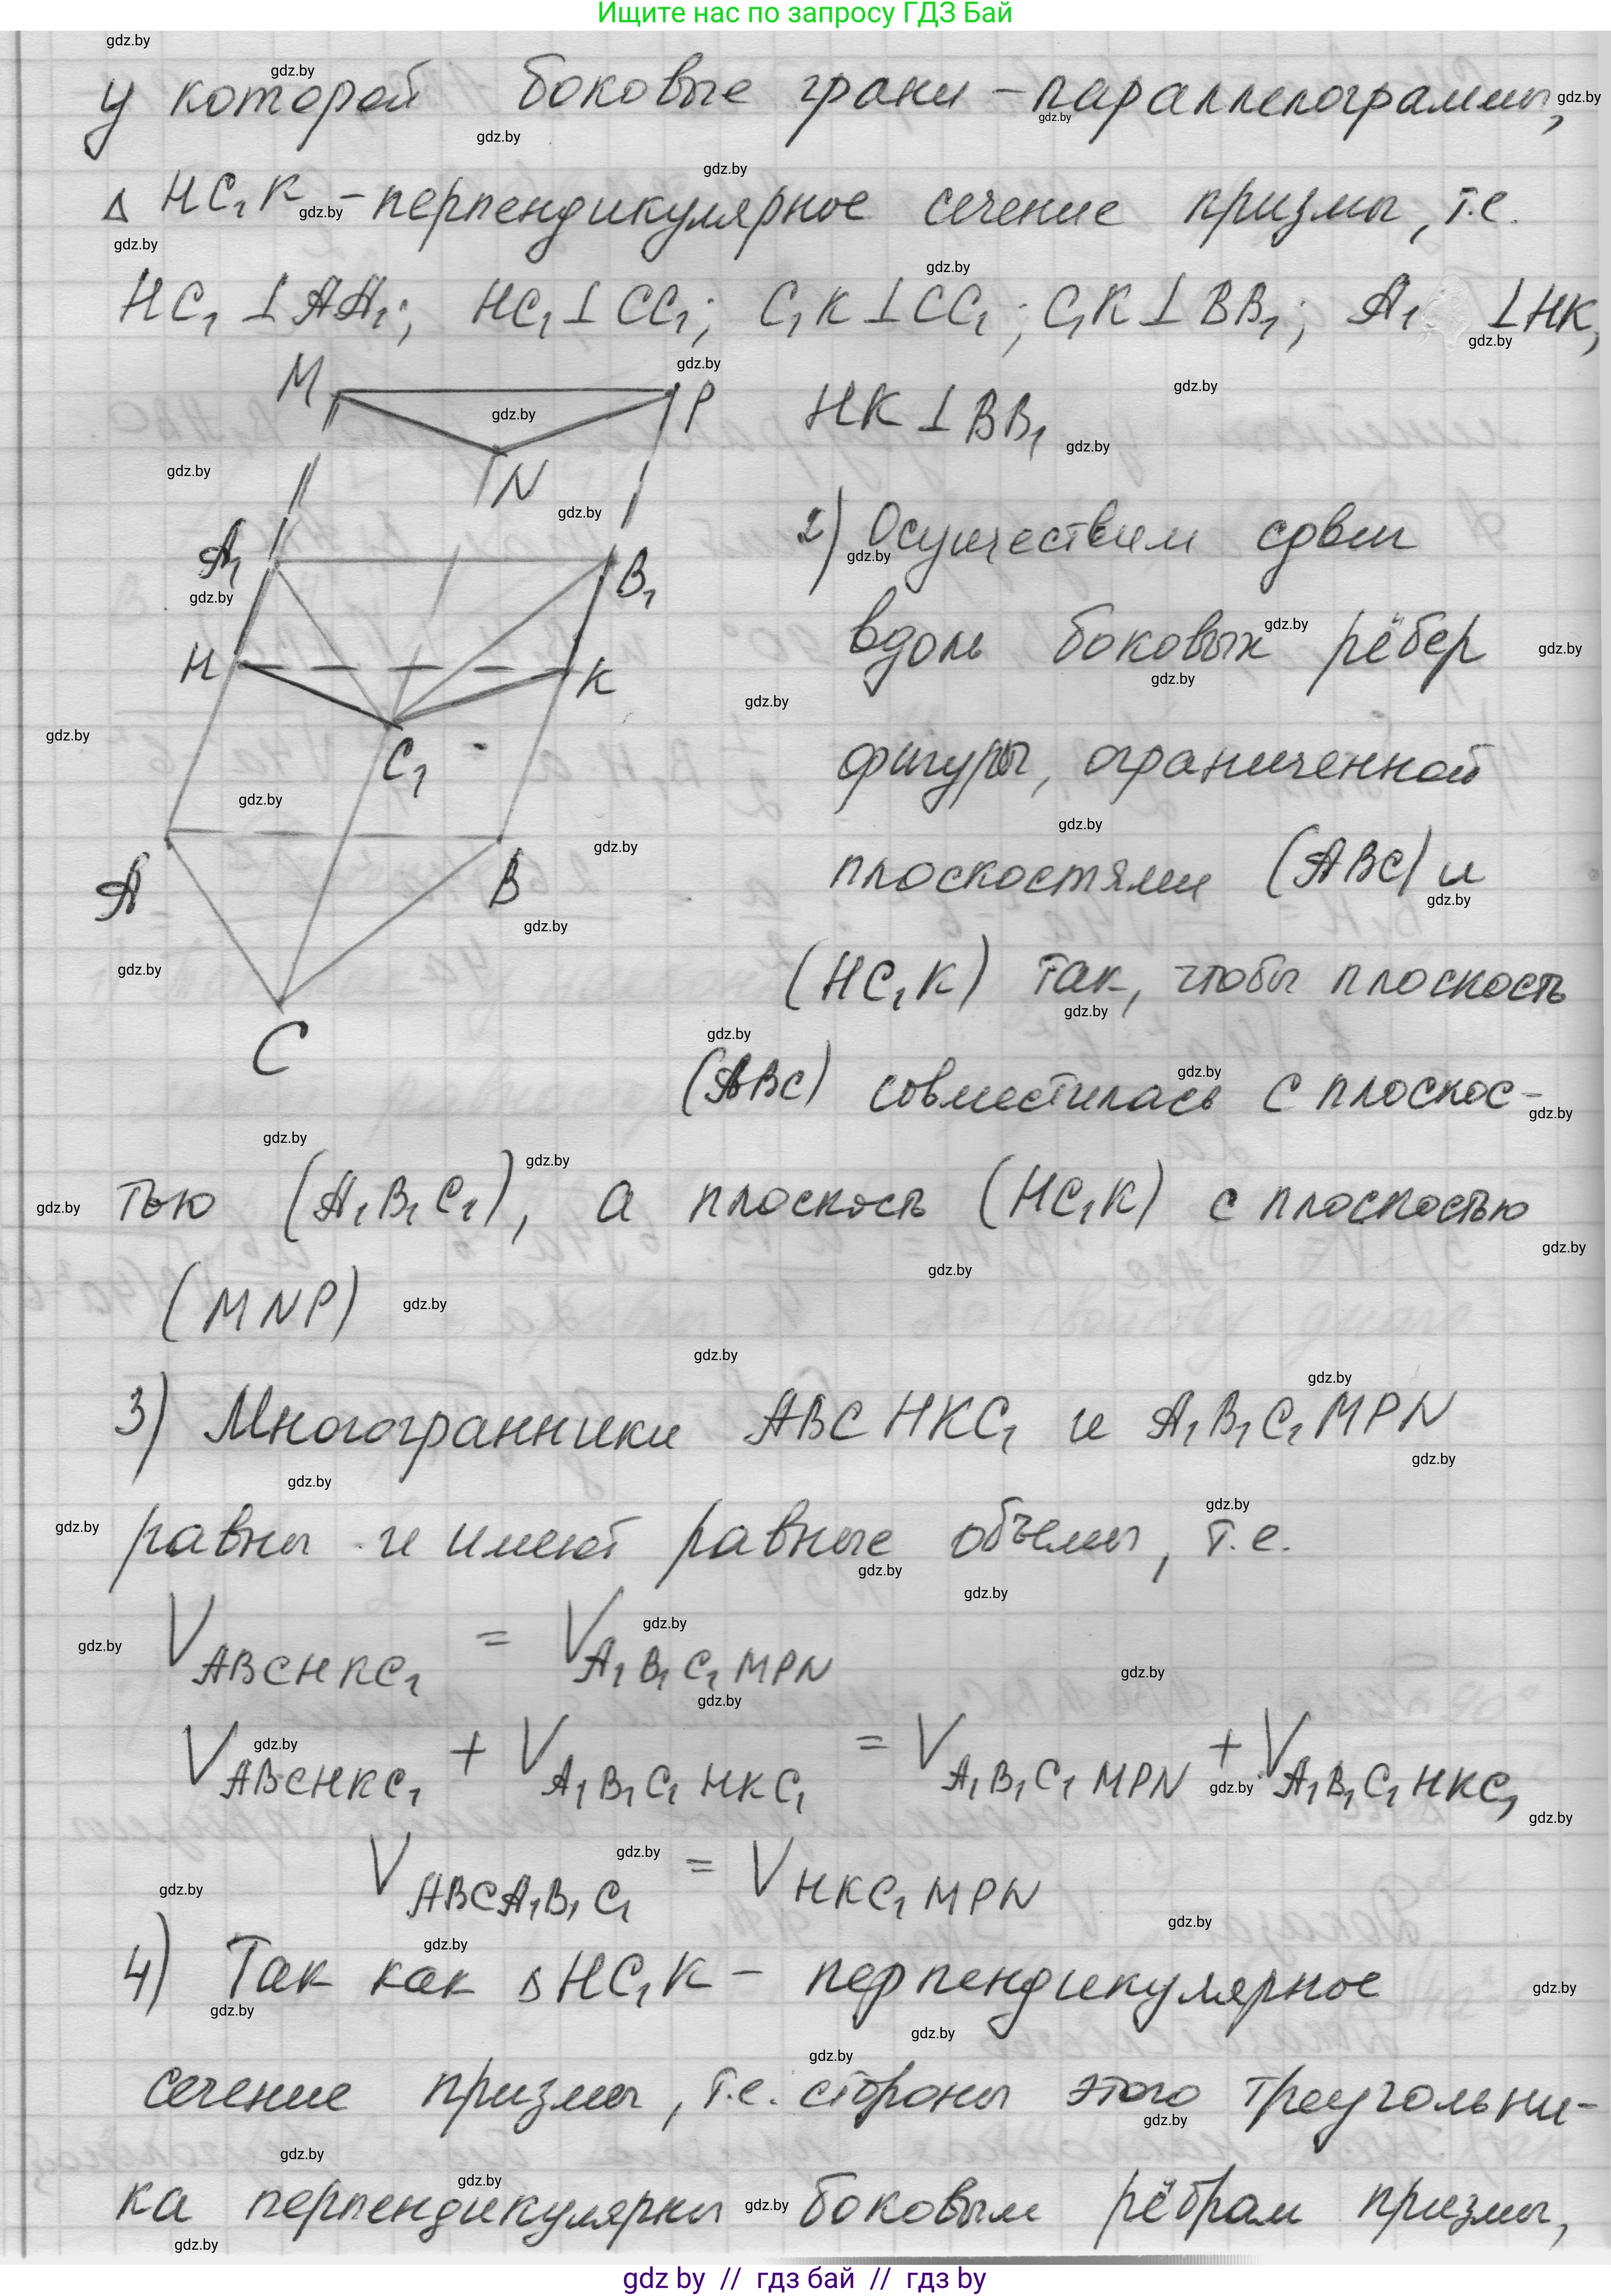 Ищите нас по запросу ГДЗ Бай
у которой боковые грани – параллелограммы,
Δ HC₁K – перпендикулярное сечение призмы, т.е.
HC₁ ⊥ AA₁; HC₁ ⊥ CC₁; C₁K ⊥ CC₁; C₁K ⊥ BB₁; A₁ ⊥ HK,
HK ⊥ BB₁
M
P
N
A₁
B₁
H
K
C₁
A
B
C
2) Осуществим сдвиг
вдоль боковых рёбер
фигуры, ограниченной
плоскостями (ABC) и
(HC₁K) так, чтобы плоскость
(ABC) совместилась с плоскос-
тью (A₁B₁C₁), а плоскость (HC₁K) с плоскостью
(MNP)
3) Многогранники ABCHKC₁ и A₁B₁C₁MPN
равны и имеют равные объемы, т.е.
V ABCHKC₁ = V A₁B₁C₁MPN
V ABCHKC₁ + V A₁B₁C₁HKC₁ = V A₁B₁C₁MPN + V A₁B₁C₁HKC₁
V ABCA₁B₁C₁ = V HKC₁MPN
4) Так как Δ HC₁K – перпендикулярное
сечение призмы, т.е. стороны этого треугольни-
ка перпендикулярны боковым рёбрам призмы,
gdz by // гдз бай // гдз by